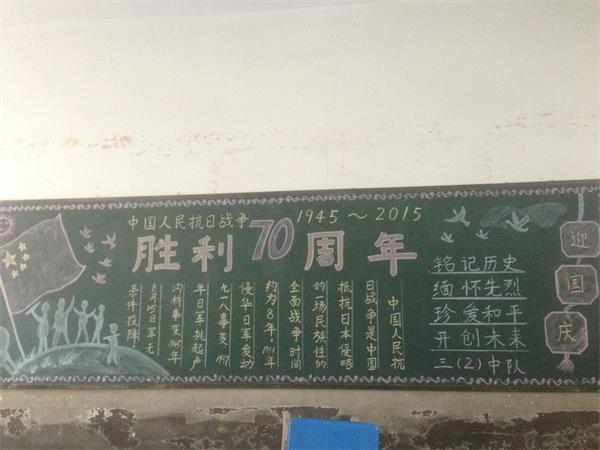 中国人民抗日战争
1945～2015
胜利70周年
中国人民抗
日战争是中国
抵抗日本侵略
的一场民族性的
全面战争时间
约为8年。1931年
侵华日军发动
九一八事变 1937
年日军挑起卢
沟桥事变 1945年
8月15日军无
条件投降
铭记历史
缅怀先烈
珍爱和平
开创未来
三（2）中队
迎
国
庆